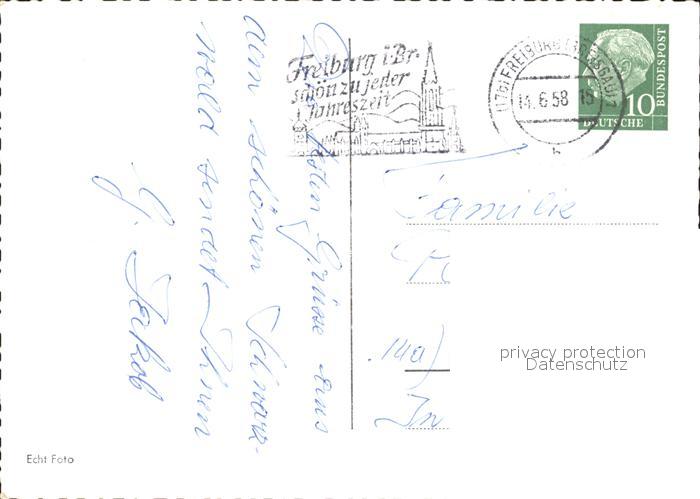 Freiburg i. Br.
schön zu jeder
Jahreszeit
(17b) FREIBURG (BREISGAU) 2
14.6.58 15
b
10
DEUTSCHE
BUNDESPOST
Grüsse aus
dem schönen Schwarz-
wald sendet Ihnen
G. Jakob
Familie
14a)
In
privacy protection
Datenschutz
Echt Foto